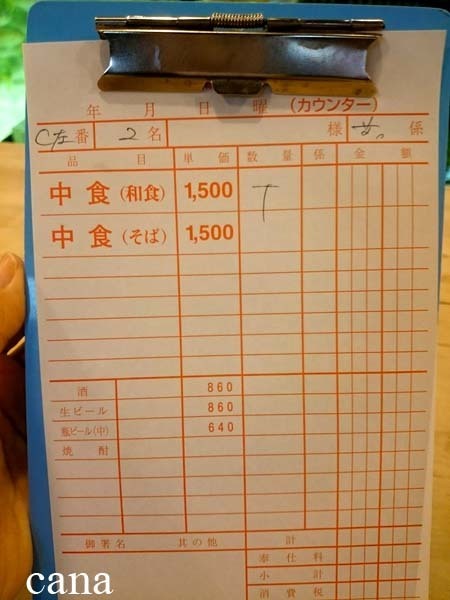 年 月 日 曜 (カウンター)
C左番 2名 様 係
品 目 単 価 数 量 係 金 額
中 食 (和食) 1,500 T
中 食 (そば) 1,500
酒 860
生ビール 860
瓶ビール(中) 640
焼 酎
御署名 その他 計
奉 仕 料
小 計
消 費 税
cana